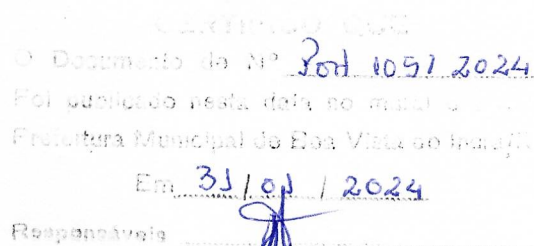 CERTIFICO QUE
O Documento de Nº Port 1051 2024
Foi publicado nesta data no mural
Prefeitura Municipal de Boa Vista do
Em 31 / 01 / 2024
Responsáveis